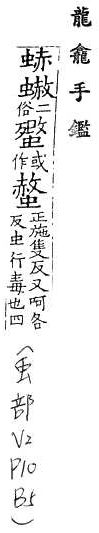 龍龕手鑑
蛂𧐐俗二𧎵作或螫正施隻反又呵各
反虫行毒也四
(虫部V2P10B5)